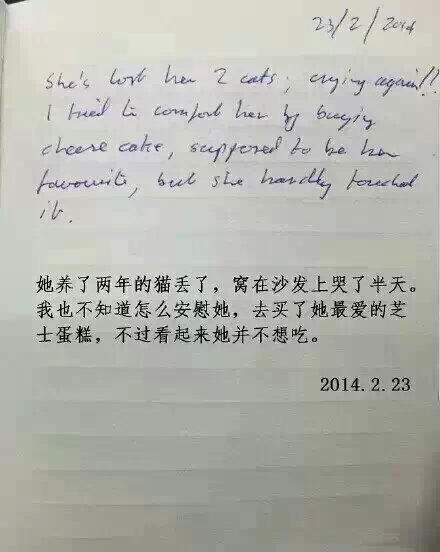 23/2/2014
She's lost her 2 cats; crying again!!
I tried to comfort her by buying
cheese cake, supposed to be her
favourite, but she hardly touched
it.
她养了两年的猫丢了，窝在沙发上哭了半天。
我也不知道怎么安慰她，去买了她最爱的芝
士蛋糕，不过看起来她并不想吃。
2014.2.23